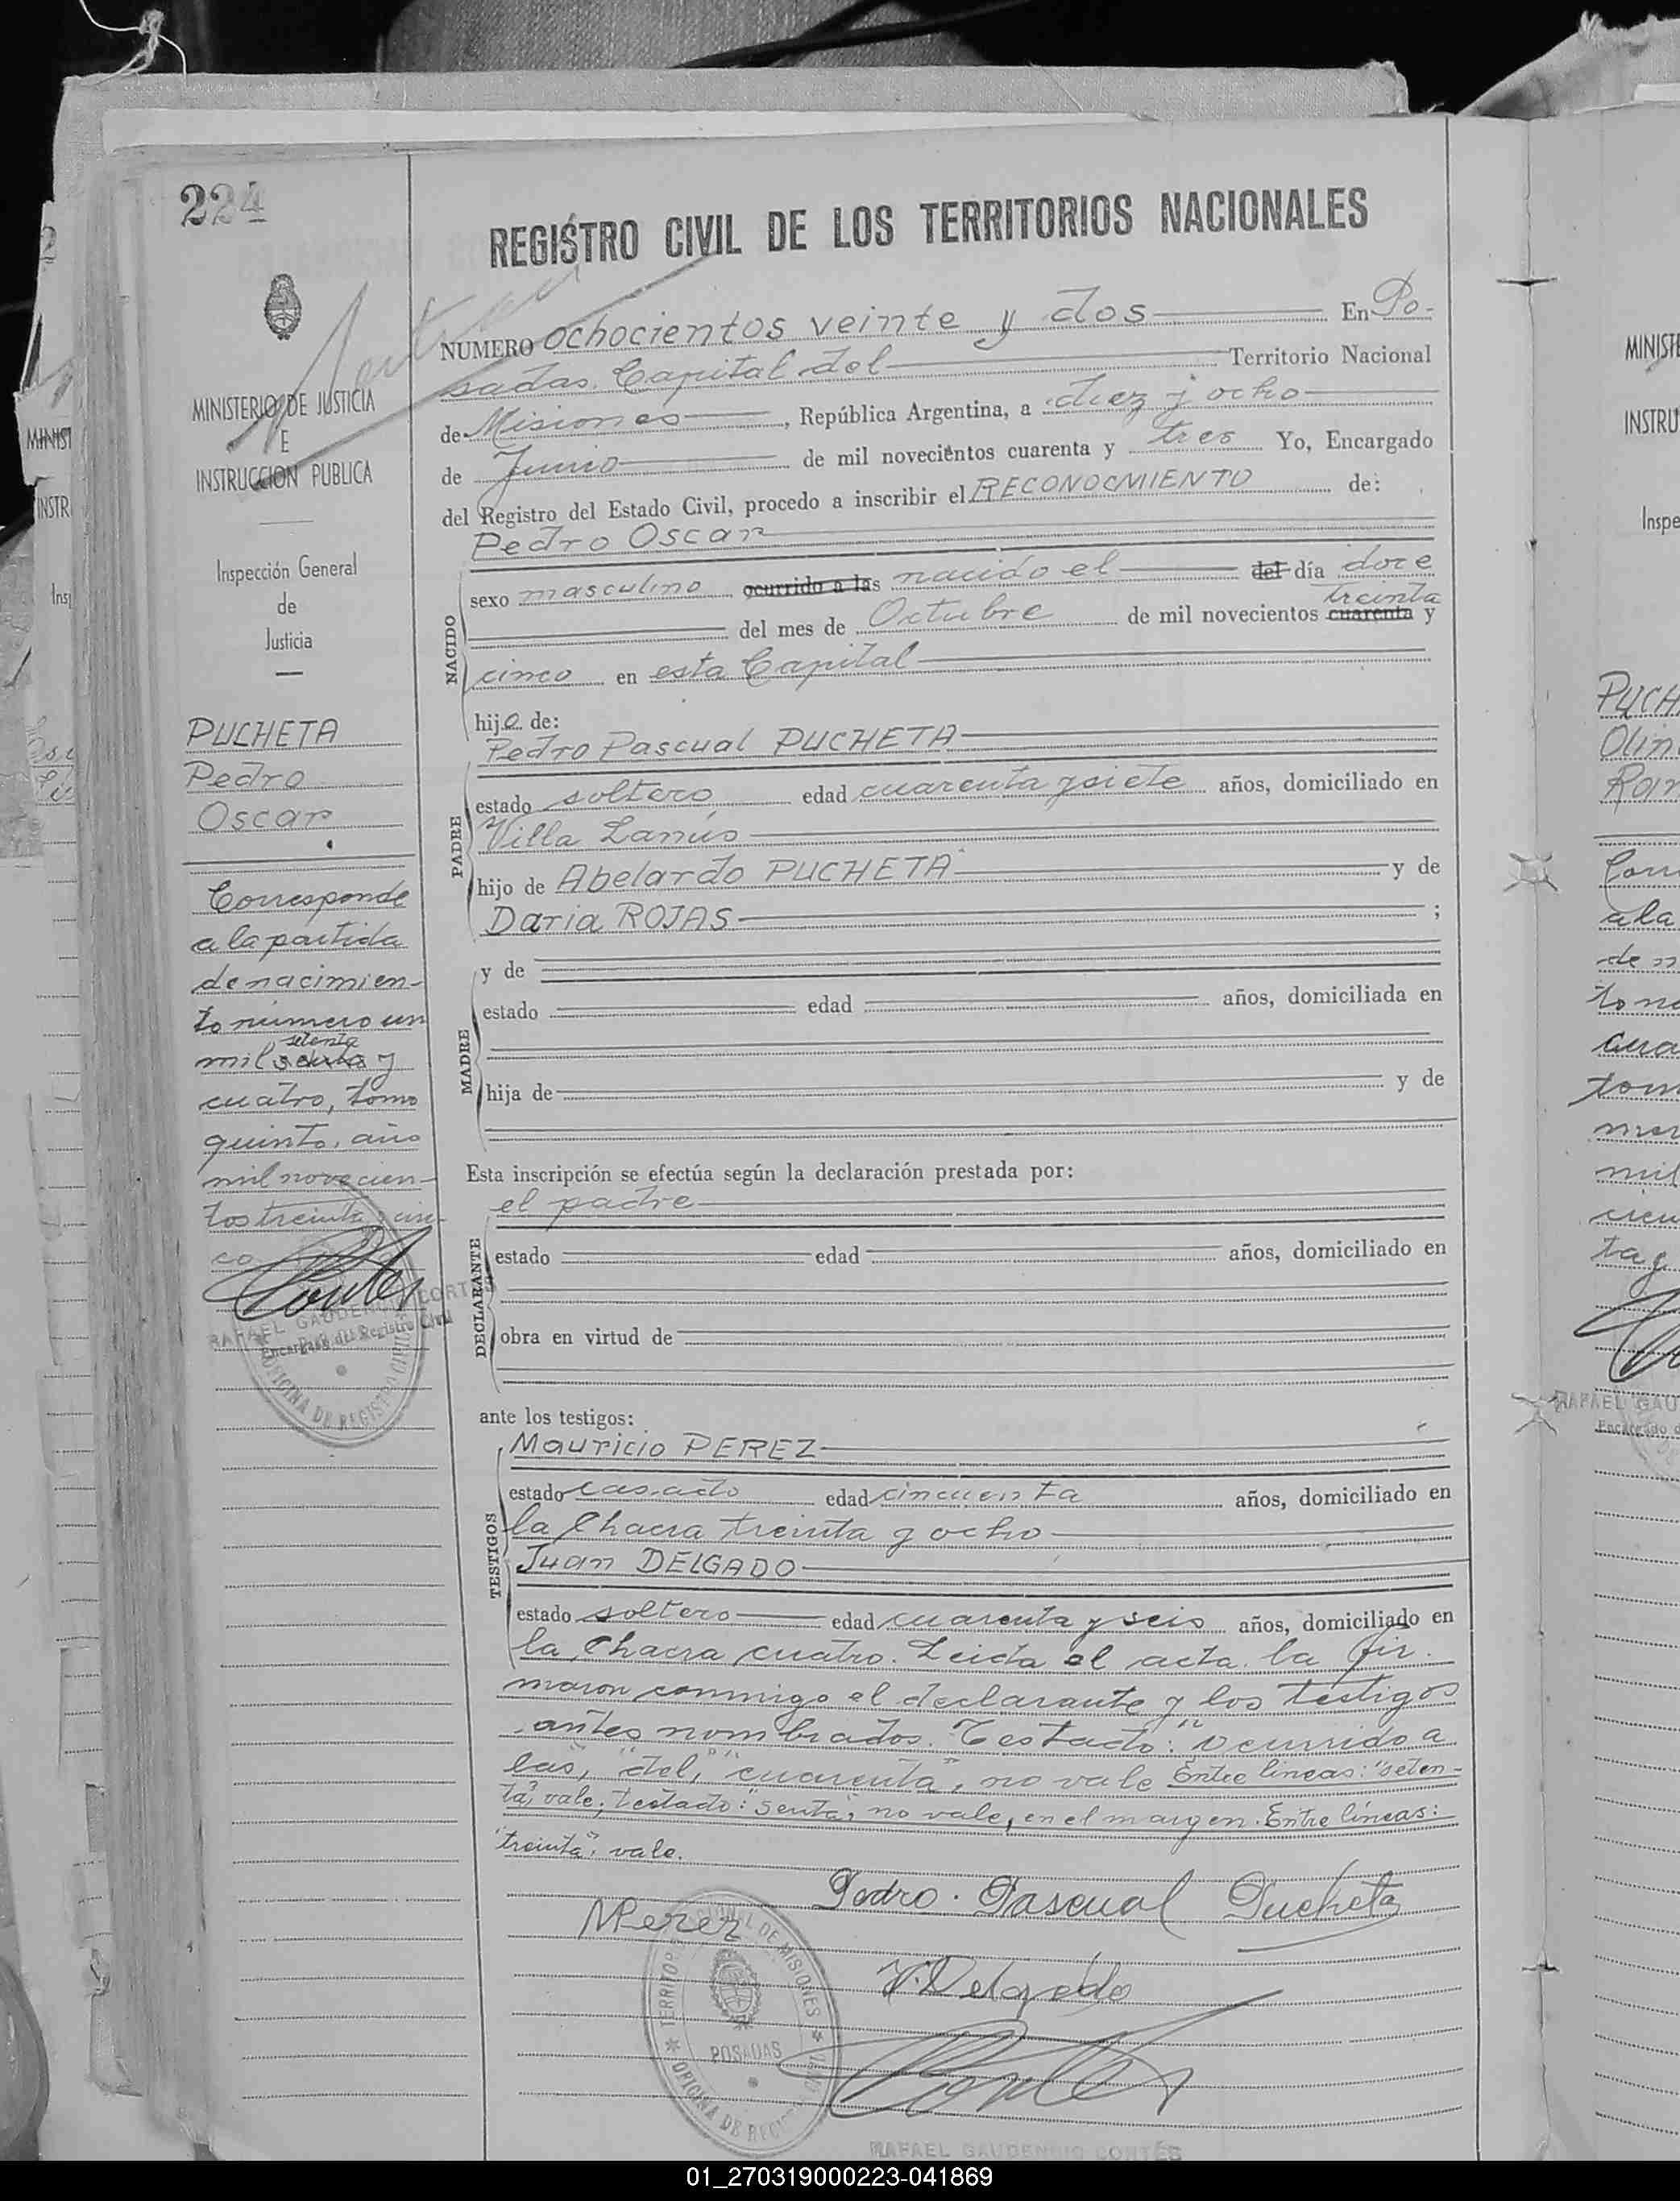 224
REGISTRO CIVIL DE LOS TERRITORIOS NACIONALES
MINISTERIO DE JUSTICIA
E
INSTRUCCION PUBLICA
Inspección General
de
Justicia
PUCHETA
Pedro
Oscar
Corresponde
a la partida
de nacimien-
to número un
setenta
mil senta y
cuatro, tomo
quinto, año
mil novecien-
tos treinta y cin-
co
RAFAEL GAUDENCIO CORTÉS
Encargado del Registro Civil
OFICINA DE REGISTRO CIVIL
NUMERO ochocientos veinte y dos En Po-
sadas, Capital del Territorio Nacional
de Misiones, República Argentina, a diez y ocho
de Junio de mil novecientos cuarenta y tres Yo, Encargado
del Registro del Estado Civil, procedo a inscribir el RECONOCMIENTO de:
Pedro Oscar
NACIDO
sexo masculino ocurrido a las nacido el del día doce
treinta
del mes de Octubre de mil novecientos cuarenta y
cinco en esta Capital
hijo de:
PADRE
Pedro Pascual PUCHETA
estado soltero edad cuarenta y siete años, domiciliado en
Villa Lanús
hijo de Abelardo PUCHETA y de
Daria ROJAS ;
MADRE
y de
estado edad años, domiciliada en
hija de y de
Esta inscripción se efectúa según la declaración prestada por:
DECLARANTE
el padre
estado edad años, domiciliado en
obra en virtud de
ante los testigos:
TESTIGOS
Mauricio PEREZ
estado casado edad cincuenta años, domiciliado en
la Chacra treinta y ocho
Juan DELGADO
estado soltero edad cuarenta y seis años, domiciliado en
la Chacra cuatro. Leida el acta la fir-
maron conmigo el declarante y los testigos
antes nombrados. Testado: "ocurrido a
las", "del," "cuarenta", no vale Entre líneas: "seten-
ta", vale; testado: "senta", no vale, en el margen. Entre líneas:
"treinta", vale.
Pedro Pascual Pucheta
MPerez
J. Delgado
TERRITORIO NACIONAL DE MISIONES
POSADAS
OFICINA DE REGISTRO CIVIL
Cortés
RAFAEL GAUDENCIO CORTÉS
01_270319000223-041869